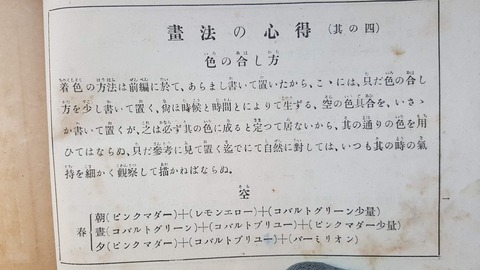 畫法の心得（其の四）
色の合し方
着色の方法は前編に於て、あらまし書いて置いたから、こゝには、只だ色の合し
方を少し書いて置く、尙ほ時候と時間とによりて生ずる、空の色具合を、いさゝ
か書いて置くが、之は必ず其の色に成ると定つて居ないから、其の通りの色を用
ひてはならぬ、只だ參考に見て置く迄でにて自然に對しては、いつも其の時の氣
持を細かく觀察して描かねばならぬ。
空
朝(ピンクマダー)+(レモンエロー)+(コバルトグリーン少量)
春 晝(コバルトグリーン)+(コバルトブリユー)+(ピンクマダー少量)
夕(ピンクマダー)+(コバルトブリユー)+(バーミリオン)